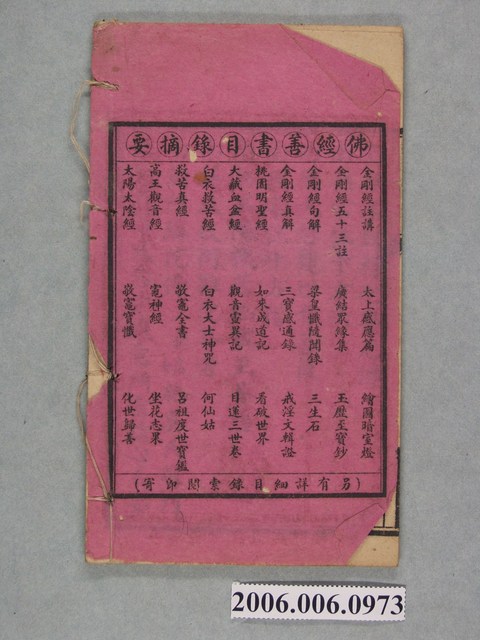 佛經善書目錄摘要
金剛經註講 太上感應篇 繪圖暗室燈
金剛經五十三註 廣結眾緣集 玉歷至寶鈔
金剛經句解 梁皇懺隨聞錄 三生石
金剛經真解 三寶感通錄 戒淫文輯證
桃園明聖經 如來成道記 看破世界
大藏血盆經 觀音靈異記 目蓮三世卷
白衣救苦經 白衣大士神咒 何仙姑
救苦真經 敬竈全書 呂祖度世寶鑑
高王觀音經 竈神經 坐花志果
太陽太陰經 敬竈寶懺 化世歸善
(另有詳細目錄索閱即寄)
2006.006.0973